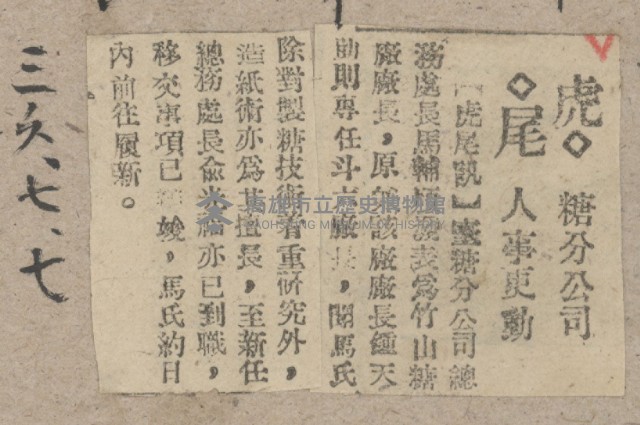 虎◇ 糖分公司
◇尾 人事更動
【虎尾訊】臺糖分公司總
務處長馬輔 發表爲竹山糖
廠廠長，原 該廠廠長鍾天
助則專任斗 廠長，聞馬氏
除對製糖技術着重研究外，
造紙術亦爲其擅長，至新任
總務處長俞 亦已到職，
移交事項已 竣，馬氏約日
內前往履新。
三六、七、七
高雄市立歷史博物館
KAOHSIUNG MUSEUM OF HISTORY